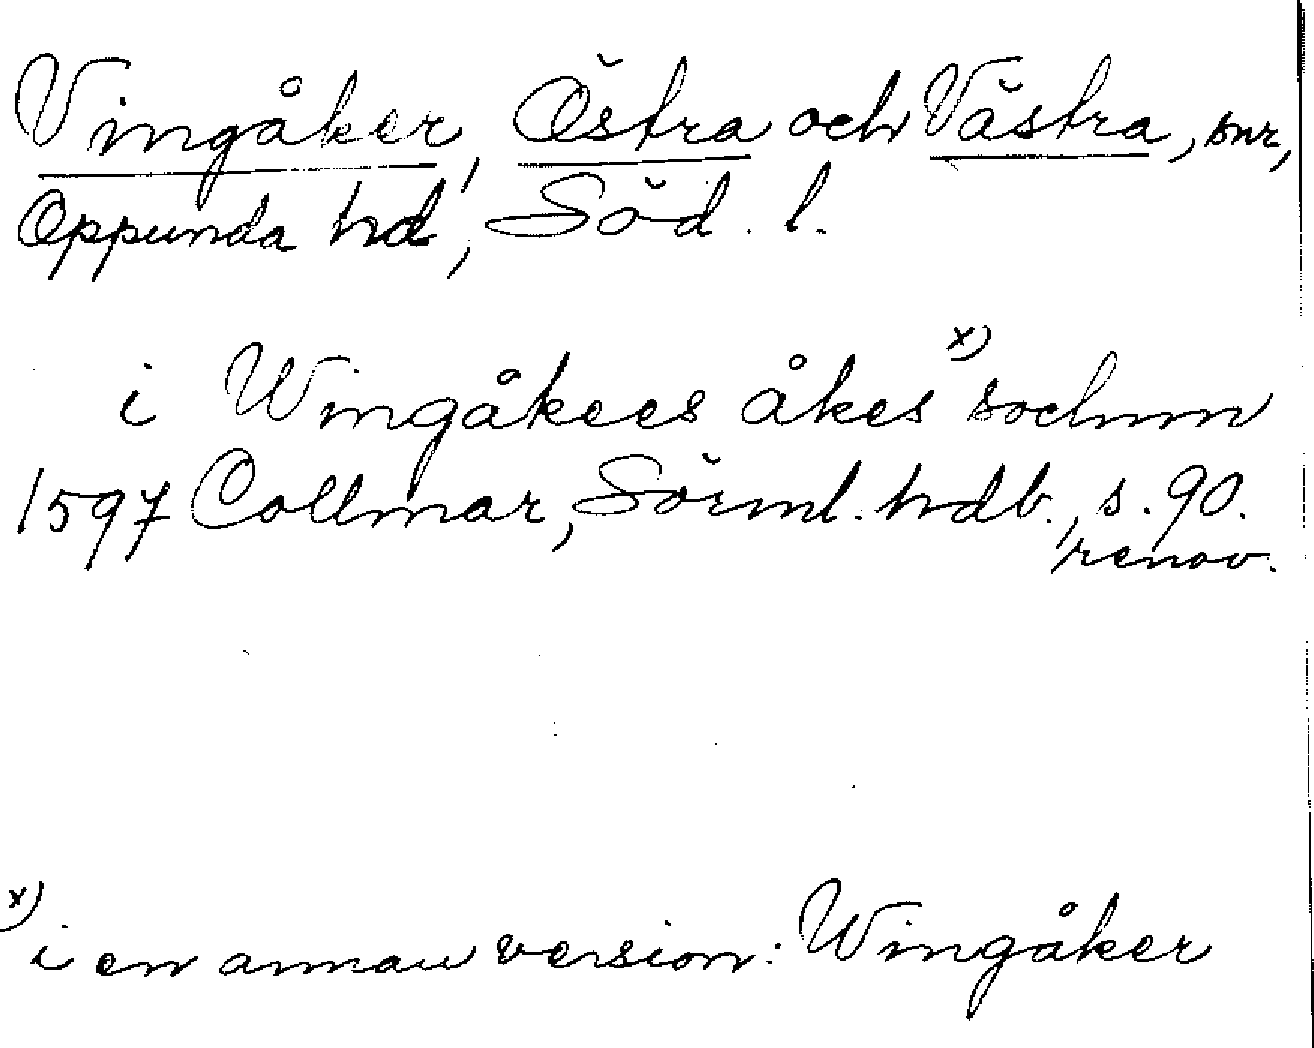 Vingåker, Östra och Västra, snr,
Oppunda hd, Söd. l.
i Wingåkees åkes x) sochnn
1597 Collmar, Sörml. hdb., s. 90.
renov.
x) i en annan version: Wingåker